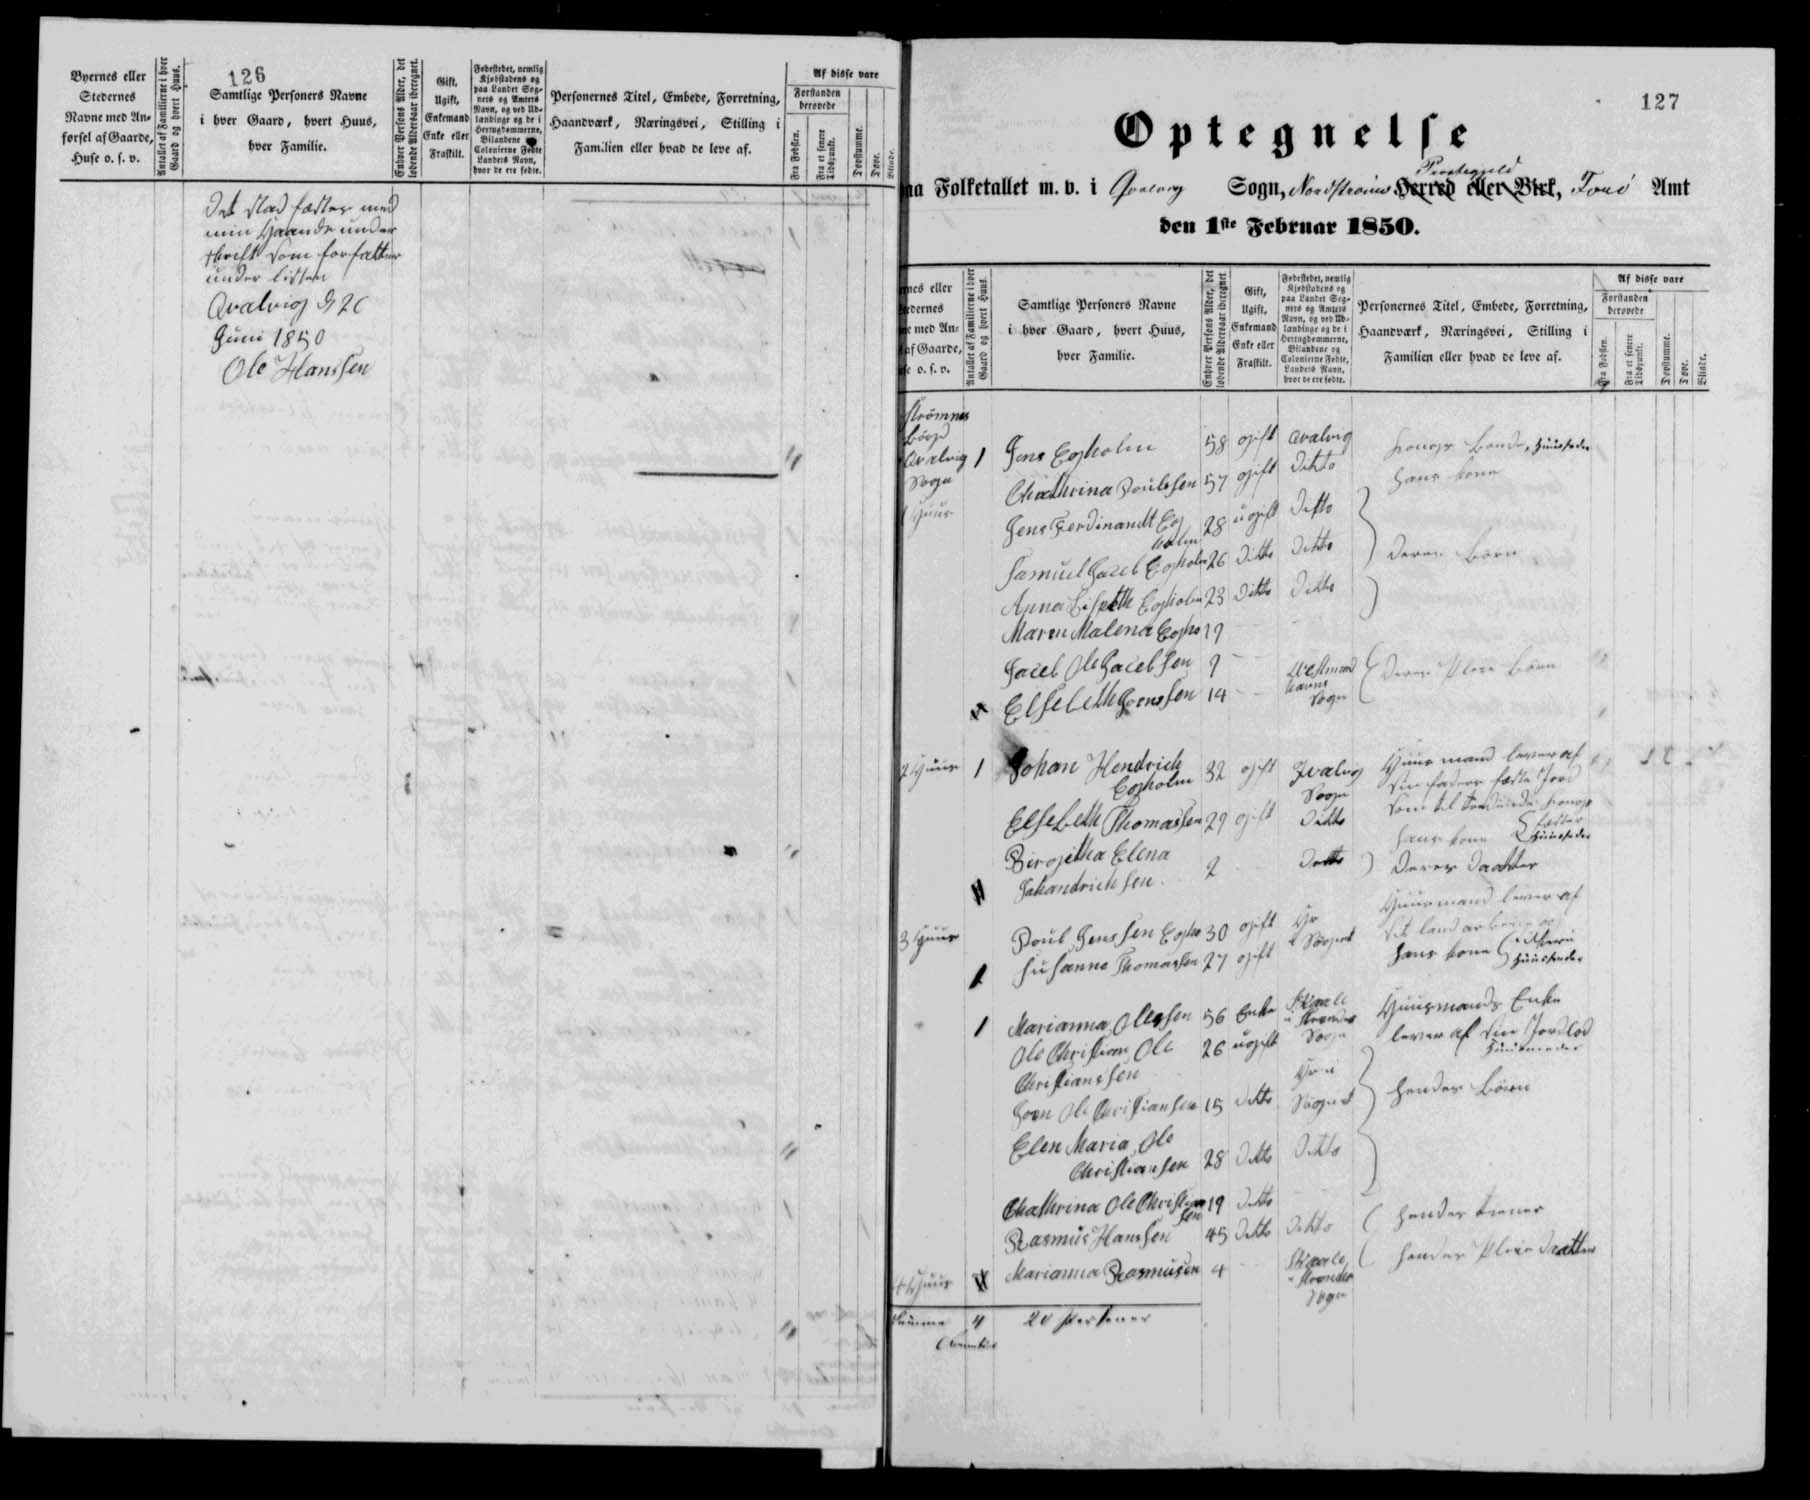 126
Byernes eller
Stedernes
Navne med An-
førsel af Gaarde,
Huse o. s. v.
Antallet af Familierne i hver
Gaard og hvert Huus.
Samtlige Personers Navne
i hver Gaard, hvert Huus,
hver Familie.
Enhver Persons Alder, det
løbende Aldersaar iberegnet.
Gift,
Ugift,
Enkemand
Enke eller
Fraskilt.
Fødestedet, nemlig
Kjøbstadens og
paa Landet Sog-
nets og Amtets
Navn, og ved Ud-
landinge og de i
Hertugdømmerne,
Bilandene
Colonierne Fødte
Landets Navn,
hvor de ere fødte.
Personernes Titel, Embede, Forretning,
Haandværk, Næringsvei, Stilling i
Familien eller hvad de leve af.
Af disse vare
Forstanden
berøvede
Fra Fødslen.
Fra et senere
Tidspunkt.
Døvstumme.
Døve.
Blinde.
Det stad fæster med
min Haande under
skrift som forfatter
under listen
Qvalvig d 26
Juni 1850
Ole Hanssen
127
Optegnelse
paa Folketallet m. v. i Qvalvig Sogn, Nordstrømø Herred eller Birk, Færø Amt
Præstegjeld
den 1ste Februar 1850.
ernes eller
Stedernes
ne med An-
af Gaarde,
use o. s. v.
Antallet af Familierne i hver
Gaard og hvert Huus.
Samtlige Personers Navne
i hver Gaard, hvert Huus,
hver Familie.
Enhver Persons Alder, det
løbende Aldersaar iberegnet
Gift,
Ugift,
Enkemand
Enke eller
Fraskilt.
Fødestedet, nemlig
Kjøbstadens og
paa Landet Sog-
nets og Amtets
Navn, og ved Ud-
landinge og de i
Hertugdømmerne,
Bilandene og
Colonierne Fødte,
Landets Navn,
hvor de ere fødte.
Personernes Titel, Embede, Forretning,
Haandværk, Næringsvei, Stilling i
Familien eller hvad de leve af.
Af disse vare
Forstanden
berøvede
Fra Fødslen.
Fra et senere
Tidspunkt.
Døvstumme.
Døve.
Blinde.
Strømnes
Bøigd
Qvalvig
Sogn
1 Huus
1 Jens Egholm 58 gift Qvalvig Kongs Bonde, Huusfader
Chathrina Poulssen 57 gift Ditto hans kone
Jens Ferdinandt Eg
holm 28 ugift Ditto
Samuel Jacob Egholm 26 Ditto Ditto Deres Børn
Anna Lisbeth Egholm 23 Ditto Ditto
Maren Malena Egho 19
Jacob Ole Jacobsen 9 Westmand
havns
Sogn Deres Pleie børn
Elsebeth Joenssen 14
2 Huus 1 Johan Hendrick
Egholm 32 gift Qvalvig
Sogn Huusmand lever af
sin faders fæste Jord
Elsebeth Thomassen 29 gift Ditto hans kone
Birgitha Elena
Johandrichsen 2 Ditto Deres Daatter
3 Huus Poul Jenssen Egho 30 gift Huusmand lever af
1 Susanne Thomassen 27 gift hans kone
1 Marianna Olessen 56 Enke Skaale
strandes
Sogn Huusmands Enke
lever af sin Jordlod
Ole Christian Ole
Christianssen 26 ugift
Joen Ole Christiansen 15 ditto Sognet hendes Børn
Elen Maria Ole
Christiansen 28 Ditto Ditto
Chathrina Ole Christian
sen 19 Ditto
Rasmus Hanssen 45 Ditto Ditto hendes tiener
4 Huus Marianna Rasmusen 4 Skaale
strandes
Sogn hendes Pleie daatter
Summa 4 20 Personer